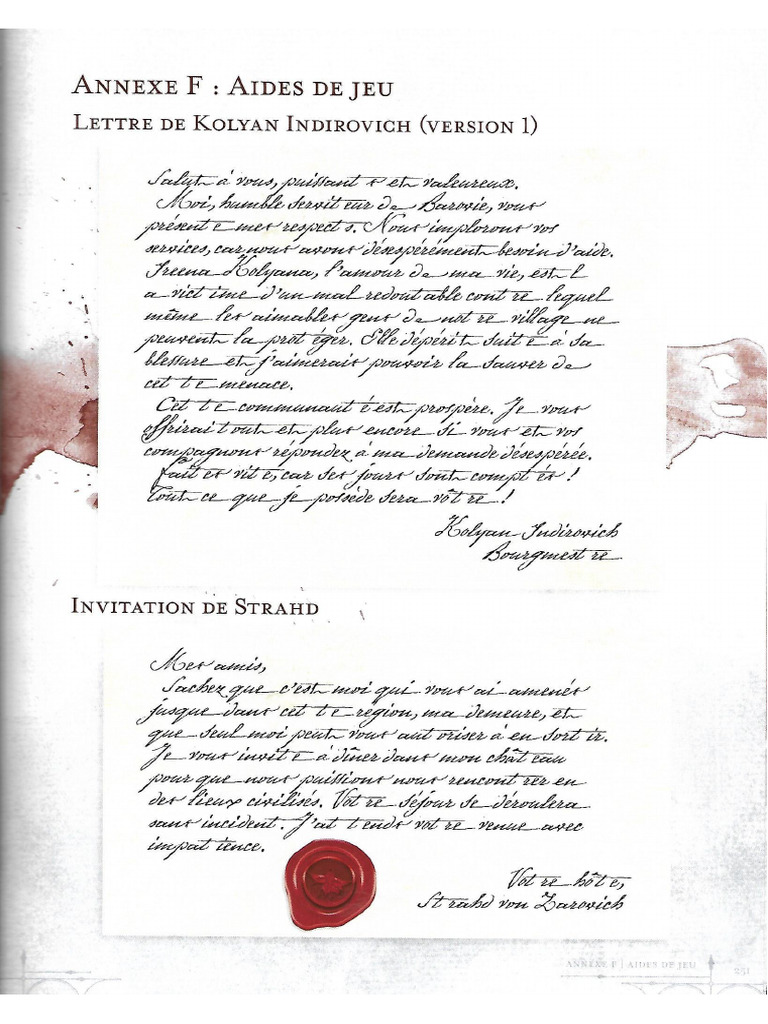 Annexe F : Aides de jeu
Lettre de Kolyan Indirovich (version 1)
Salut à vous, puissant et valeureux.
Moi, humble serviteur de Barovie, vous
présente mes respects. Nous implorons vos
services, car nous avons désespérément besoin d'aide.
Ireena Kolyana, l'amour de ma vie, est l
a victime d'un mal redoutable contre lequel
même les aimables gens de notre village ne
peuvent la protéger. Elle dépérit suite à sa
blessure et j'aimerais pouvoir la sauver de
cette menace.
Cette communauté est prospère. Je vous
offrirai tout et plus encore si vous et vos
compagnons répondez à ma demande désespérée.
Faites vite, car ses jours sont comptés !
Tout ce que je possède sera vôtre !
Kolyan Indirovich
Bourgmestre
Invitation de Strahd
Mes amis,
Sachez que c'est moi qui vous ai amenés
jusque dans cette région, ma demeure, et
que seul moi peut vous autoriser à en sortir.
Je vous invite à dîner dans mon château
pour que nous puissions nous rencontrer en
des lieux civilisés. Votre séjour se déroulera
sans incident. J'attends votre venue avec
impatience.
Votre hôte,
Strahd von Zarovich
Annexe F | Aides de jeu